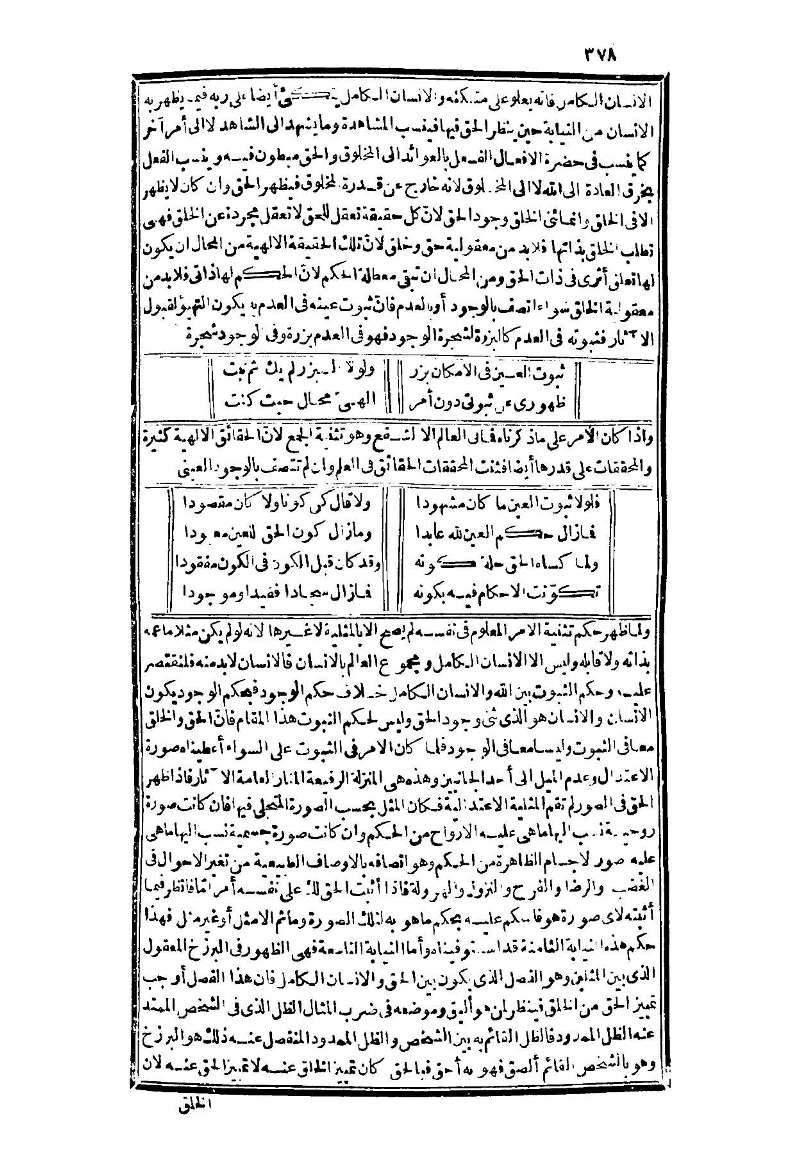 ٣٧٨
الانسان الكامل فانه يعلو على متكئه والانسان الكامل يتكئ أيضا على ربه فيما يظهر به
الانسان من النيابة حين ينظر الحق فيها فينسب المشاهدة وما يشهد الى الشاهد لا الى أمر آخر
كما ينسب فى حضرة الافعال الفعل بالعوائد الى المخلوق والحق مبطون فيه وينسب الفعل
بخرق العادة الى الله لا الى المخلوق لانه خارج عن قدرة المخلوق فيظهر الحق وان كان لا يظهر
الا فى الخلق وانما ثنى الخلق وجود الحق لان كل حقيقة تعقل للحق لا تعقل مجردة عن الخلق فهى
تطلب الخلق بذاتها فلا بد من معقولية حق وخلق لان تلك الحقيقة الالهية من المحال ان يكون
لها تعلق أثرى فى ذات الحق ومن المحال ان تبقى معطلة الحكم لان الحكم لها ذاتى فلا بد من
معقولية الخلق سواء اتصف بالوجود أو بالعدم فان ثبوت عينه فى العدم به يكون التهيؤ لقبول
الآثار فثبوته فى العدم كالبزرة لشجرة الوجود فهو فى العدم بزرة وفى الوجود شجرة
ثبوت العين فى الامكان بزر ولولا البزر لم يك ثم نبت
ظهورى عن ثبوتى دون أمر الهى محال حيث كنت
واذا كان الأمر على ماذكرناه فما فى العالم الا الشفع وهو تثنية الجمع لان الحقائق الالهية كثيرة
والمحققات على قدرها أيضا فثنت المحققات الحقائق فى العلم وان لم تتصف بالوجود العينى
فلولا ثبوت العين ما كان مشهودا ولا قال كن كونا ولا كان مقصودا
فما زال حكم العين لله عابدا وما زال كون الحق للعين معبودا
ولما كساه الحق حلة كونه وقد كان قبل الكون فى الكون مفقودا
تكونت الاحكام فيه بكونه فما زال سجادا فقيدا وموجودا
ولما ظهر حكم تثنية الامر المعلوم فى نفسه لم يصح الا بالمثلية لا غيرها لانه لو لم يكن مثلا ما عمه
بذاته ولا قابله وليس الا الانسان الكامل ومجموع العالم بالانسان فالانسان لا بد منه فلنقتصر
عليه وحكم الثبوت بين الله والانسان الكامل خلاف حكم الوجود فبحكم الوجود يكون
الانسان والانسان هو الذى ثنى وجود الحق وليس لحكم الثبوت هذا المقام فان الحق والخلق
معا فى الثبوت وليسا معا فى الوجود فلما كان الامر فى الثبوت على السواء أعطيناه صورة
الاعتدال وعدم الميل الى أحد الجانبين وهذه هى المنزلة الرفيعة المنار العامة الآثار فاذا ظهر
الحق فى الصور لم تقم المثلية الاعتدالية فكان المثل بحسب الصورة المتجلى فيها فان كانت صورة
روحية نسب اليها ما هى عليه الارواح من الحكم وان كانت صورة جسمية نسب اليها ما هى
عليه صور الاجسام الظاهرة من الحكم وهو اتصافه بالاوصاف الطبيعية من تغير الاحوال فى
الغضب والرضا والفرح والنزول والهرولة فاذا أثبت الحق لك على نفسه أمرا ما فانظر فيما
أثبته لاى صورة هو فاحكم عليه بحكم ما هو به لتلك الصورة وما ثم الا مثل أو غير مثل فهذا
حكم هذه النيابة الثامنة قد استوفيناه وأما النيابة التاسعة فهى الظهور فى البرزخ المعقول
الذى بين المثلين وهو الفصل الذى يكون بين الحق والانسان الكامل فان هذا الفصل أوجب
تمييز الحق من الخلق فينظر لمن هو أليق وموضعه فى ضرب المثال الظل الذى فى الشخص الممتد
عنه الظل الممدود فالظل القائم به بين الشخص والظل الممدود المنفصل عنه ذلك هو البرزخ
وهو بالشخص القائم ألصق فهو به أحق فبالحق كان تمييز الخلق عنه لا تمييز الحق عنه لان
الخلق